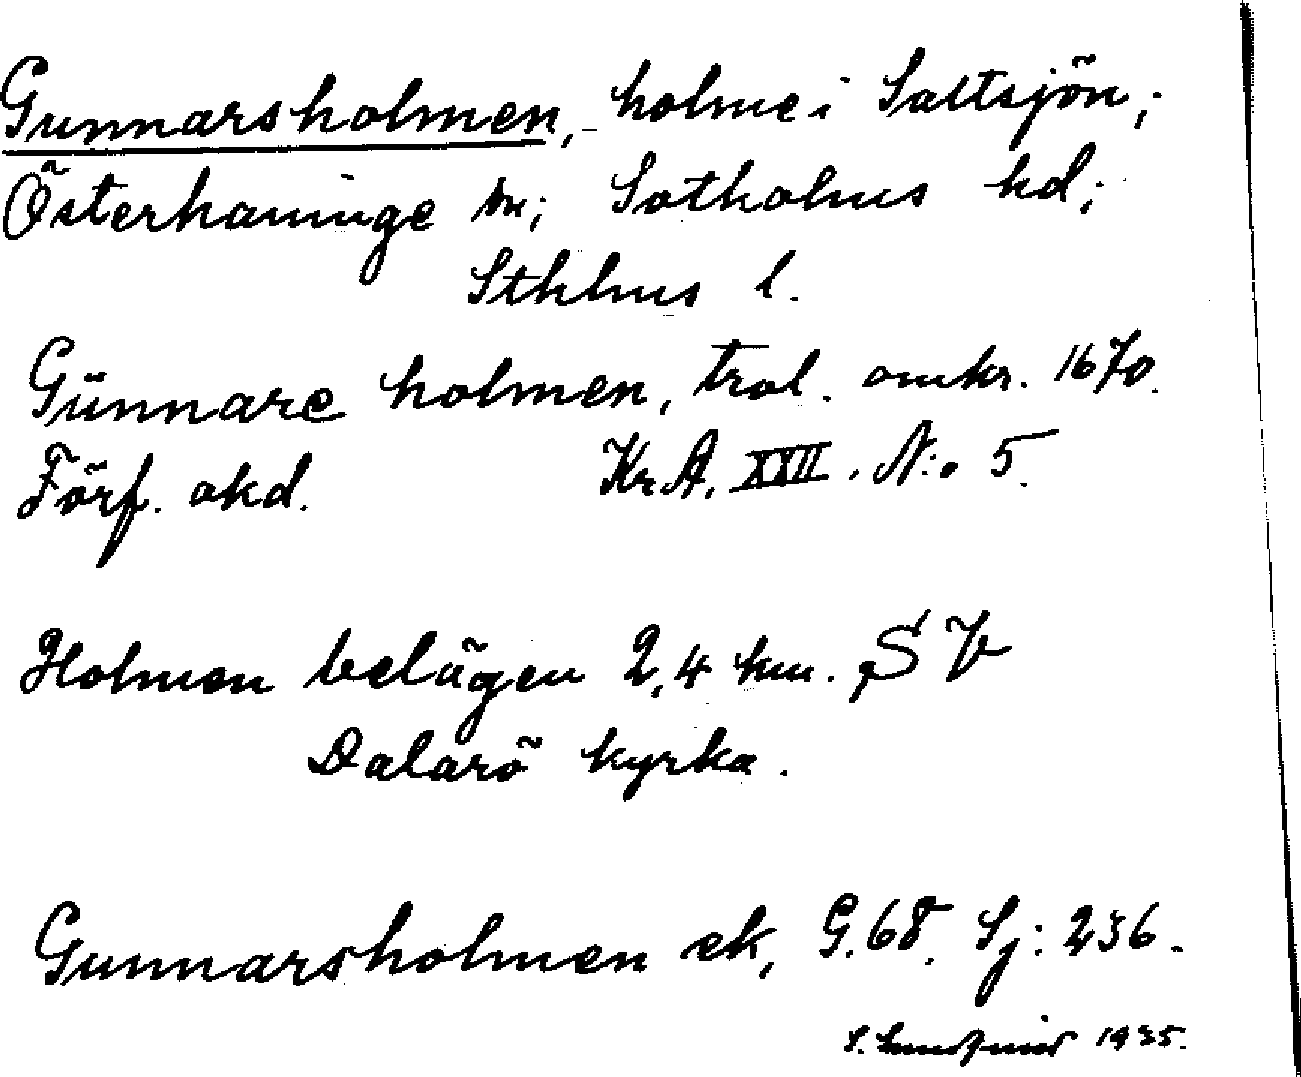 Gunnarsholmen, holme i Saltsjön;
Österhaninge sn; Sotholms hd;
Sthlms l.
Günnare holmen, trol. omkr. 1670.
Förf. okd. Kr.A, XXII. N:o 5.
Holmen belägen 2,4 km. SV
Dalarö kyrka.
Gunnarsholmen ek, G.68. Sj: 236.
S. 1935.